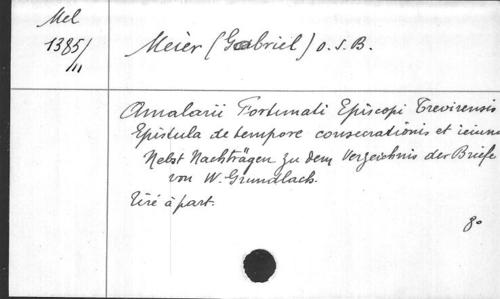 Mel
1385/
11
Meier (Gabriel) O.S.B.
Amalarii Fortunati Episcopi Trevirensis
Epistula de tempore consecrationis et ieiunii
Nebst Nachträgen zu dem Verzeichnis der Briefe
von W. Gundlach.
Tiré à part.
8°